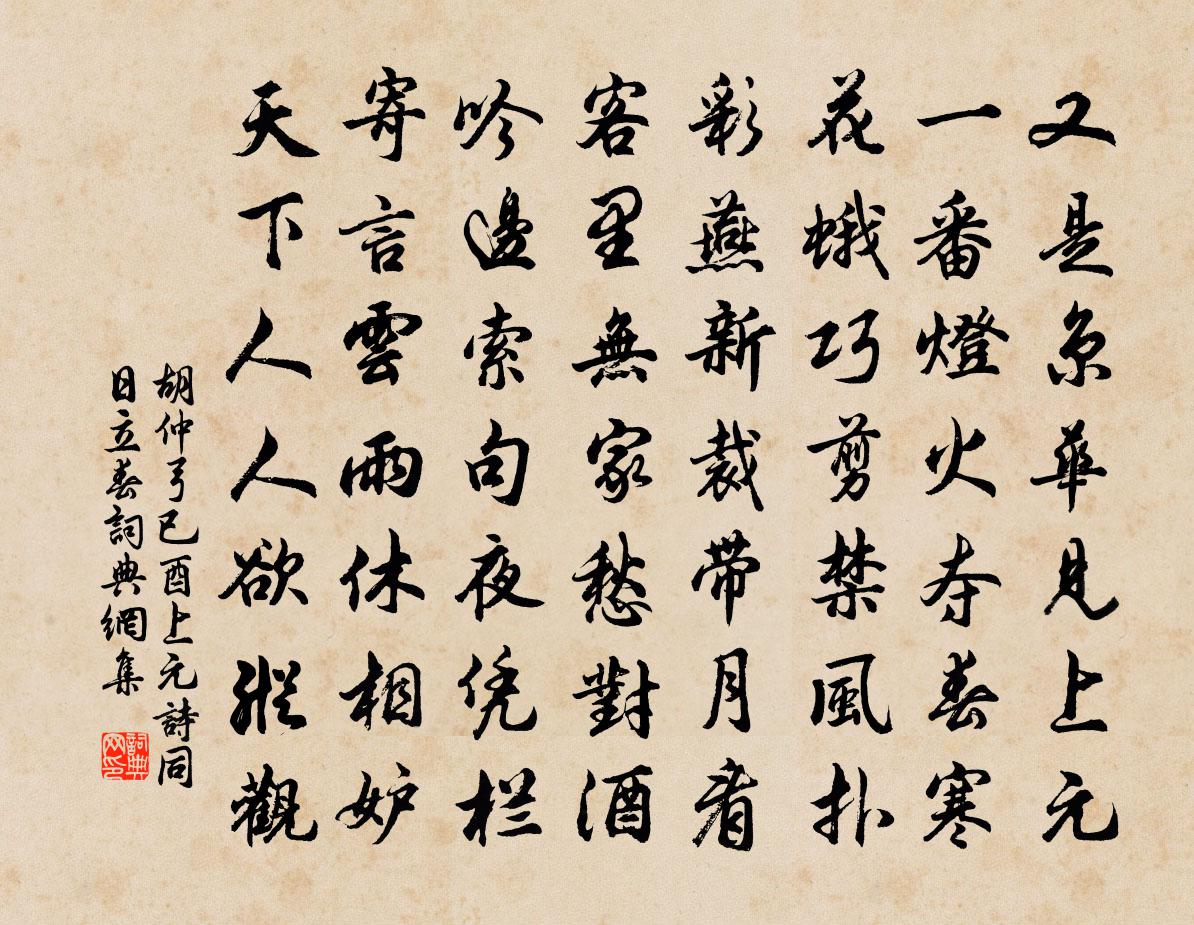 又是京華見上元
一番燈火夺春寒
花蛾巧剪禁風扑
彩燕新裁带月看
客里無家愁對酒
吟邊索句夜凭栏
寄言雲雨休相妒
天下人人欲縱觀
胡仲弓已酉上元詩同
日立春詞典網集
詞典
网印